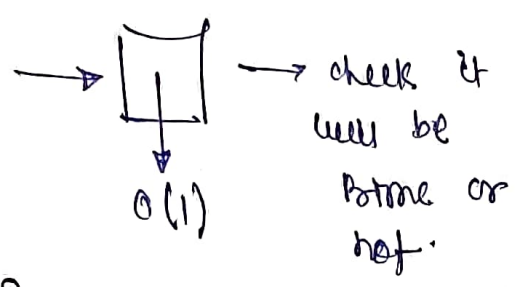 check it
will be
Prime or
not.
O(1)